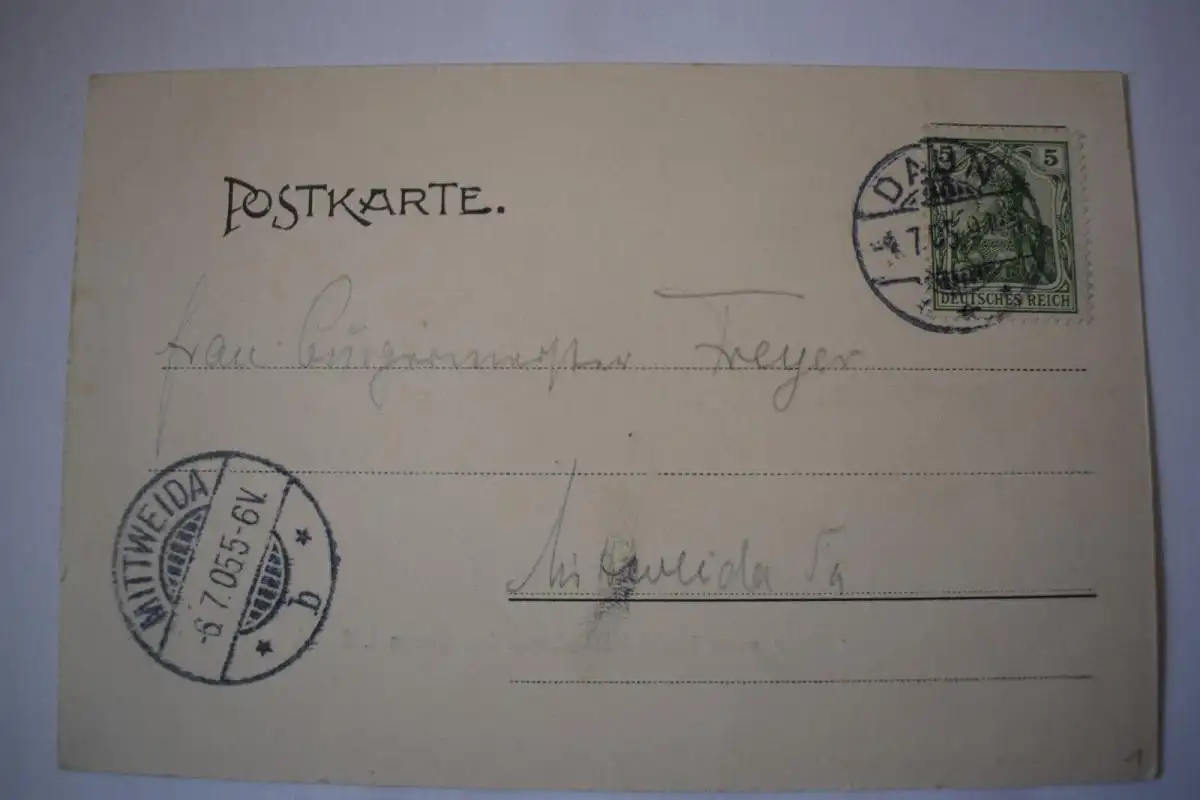 POSTKARTE.
5 5
DEUTSCHES REICH
DAUN
7.05
Frau Bürgermeister Freyer
MITTWEIDA
-6 7.05 5-6V.
b
Mittweida Sa
1